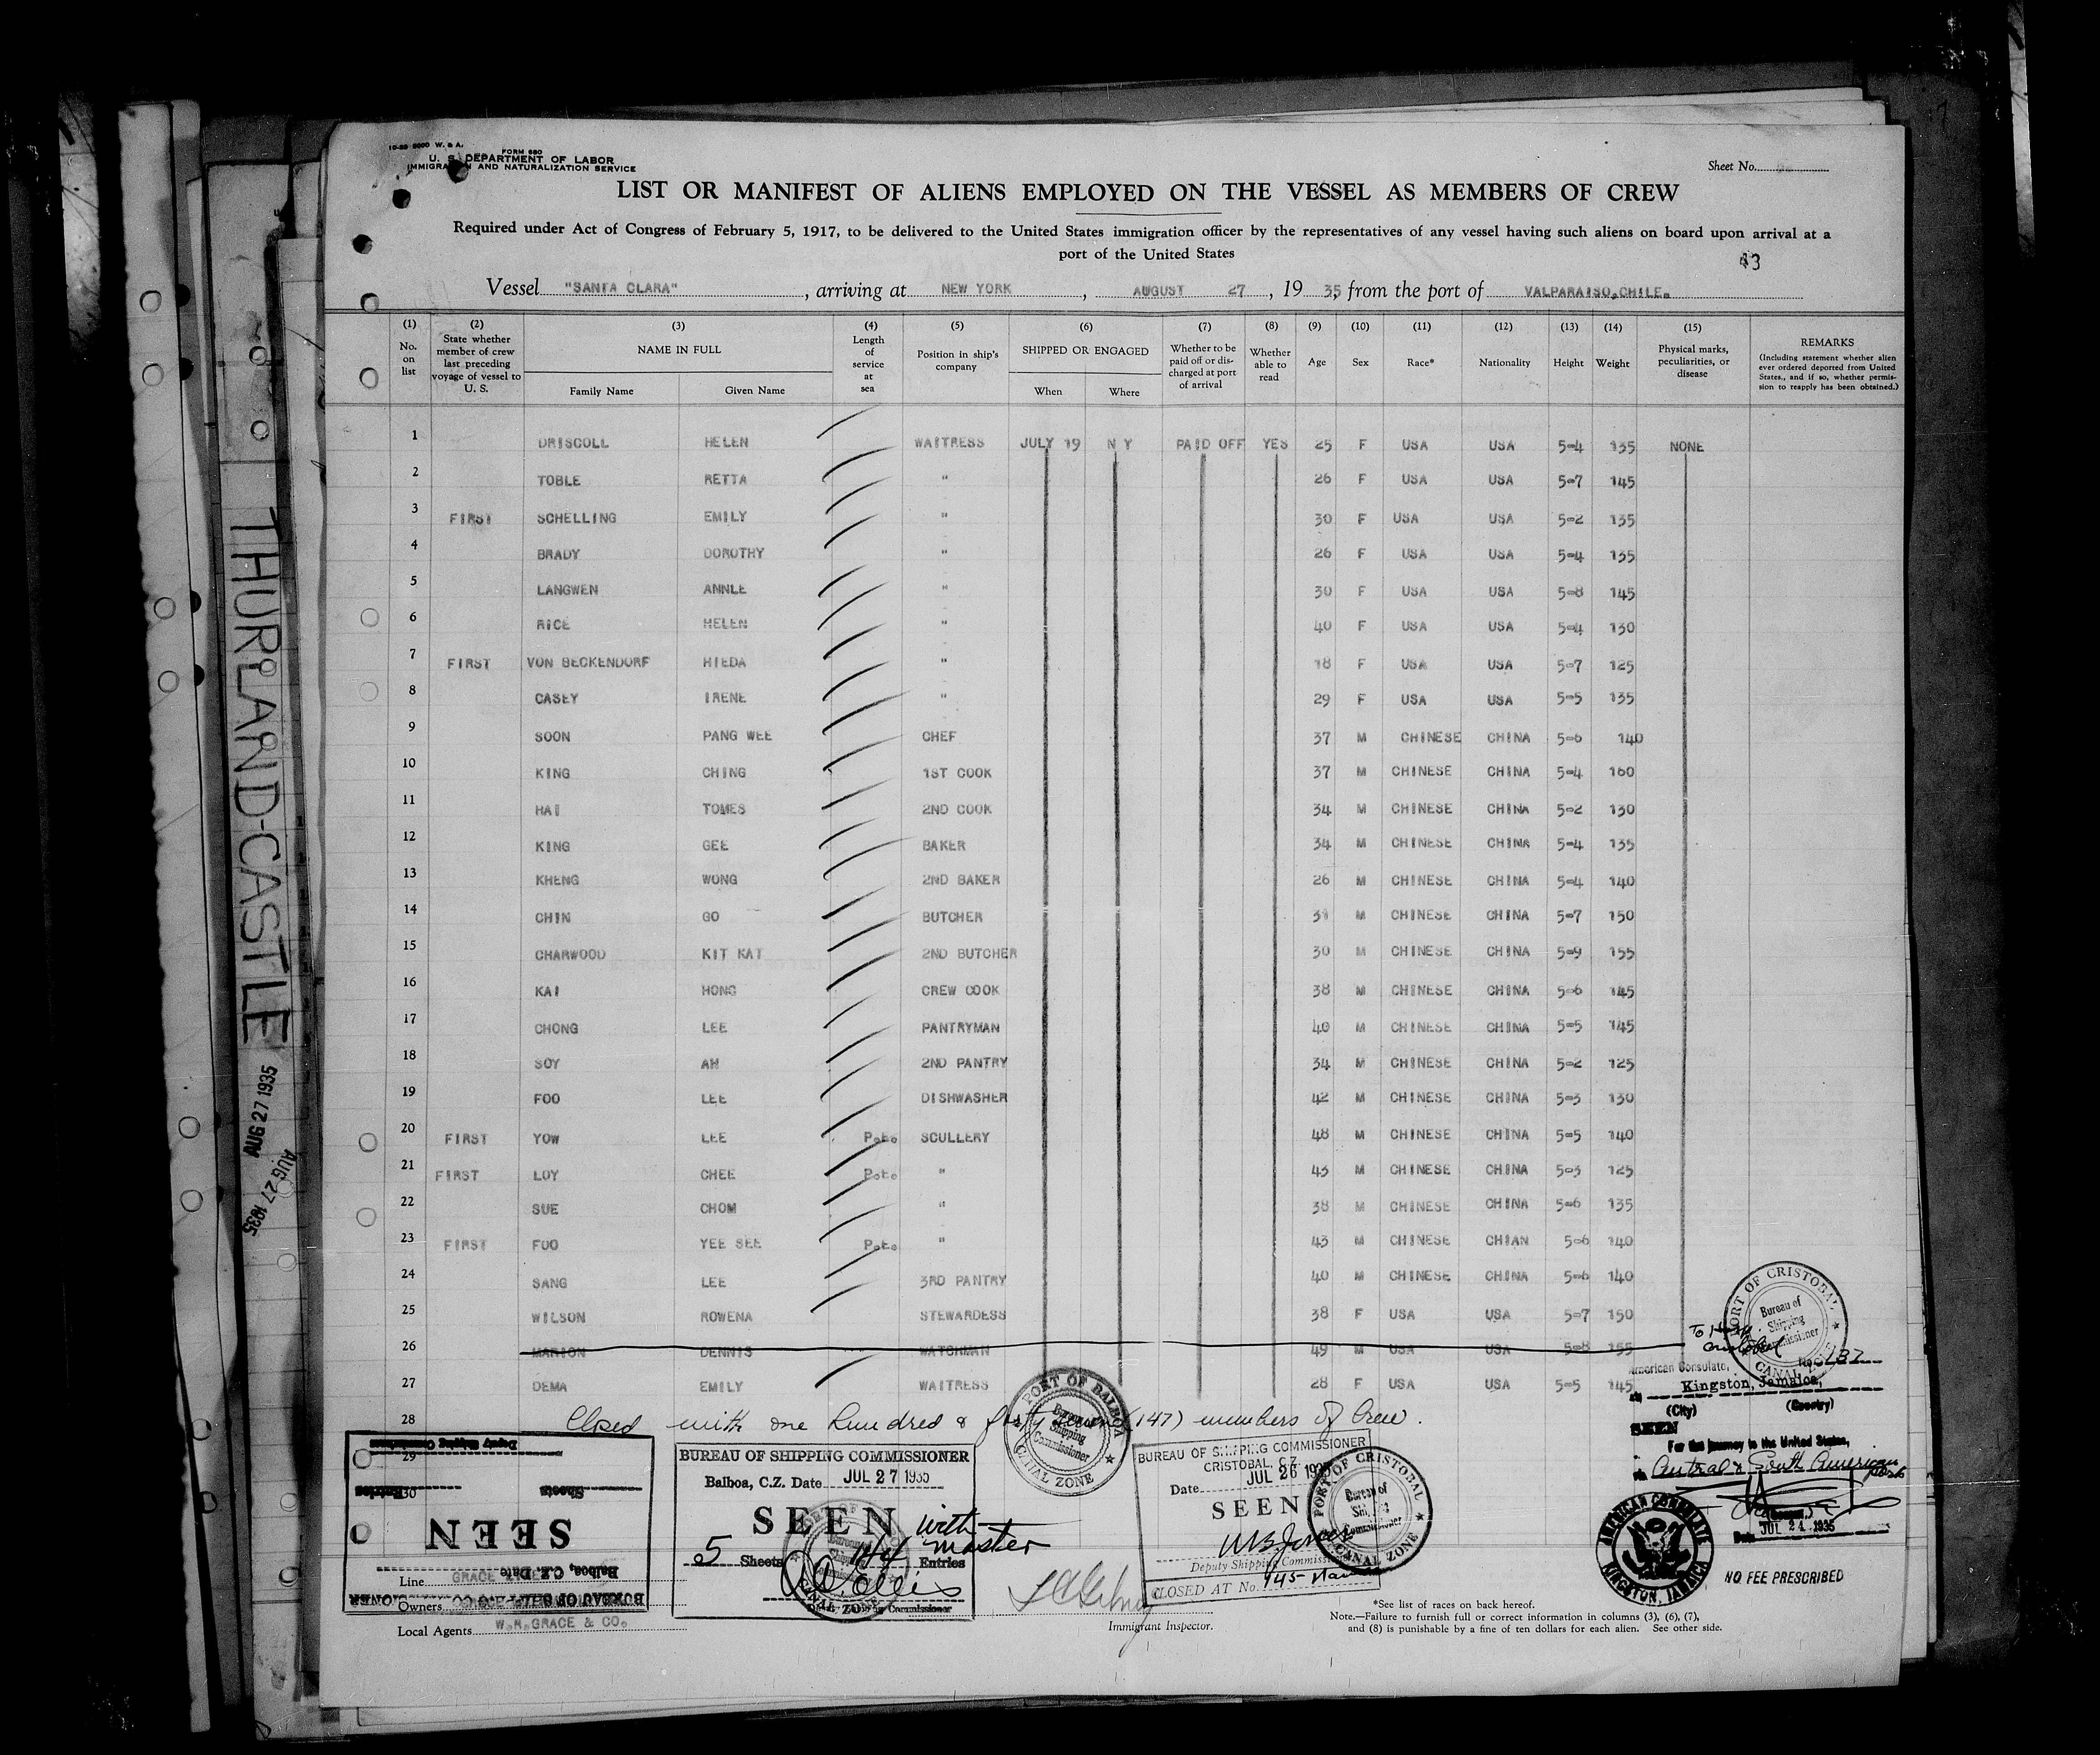 10-28 2000 W. & A.
FORM 680
U. S. DEPARTMENT OF LABOR
IMMIGRATION AND NATURALIZATION SERVICE
Sheet No.
LIST OR MANIFEST OF ALIENS EMPLOYED ON THE VESSEL AS MEMBERS OF CREW
Required under Act of Congress of February 5, 1917, to be delivered to the United States immigration officer by the representatives of any vessel having such aliens on board upon arrival at a
port of the United States
43
Vessel "SANTA CLARA", arriving at NEW YORK, AUGUST 27, 19 35, from the port of VALPARAISO,CHILE.
(1) No. on list (2) State whether member of crew last preceding voyage of vessel to U. S. (3) NAME IN FULL Family Name Given Name (4) Length of service at sea (5) Position in ship's company (6) SHIPPED OR ENGAGED When Where (7) Whether to be paid off or discharged at port of arrival (8) Whether able to read (9) Age (10) Sex (11) Race* (12) Nationality (13) Height (14) Weight (15) Physical marks, peculiarities, or disease REMARKS (Including statement whether alien ever ordered deported from United States, and if so, whether permission to reapply has been obtained.)
1 DRISCOLL HELEN WAITRESS JULY 19 N Y PAID OFF YES 25 F USA USA 5-4 135 NONE
2 TOBLE RETTA " 26 F USA USA 5-7 145
3 FIRST SCHELLING EMILY " 30 F USA USA 5-2 135
4 BRADY DOROTHY " 26 F USA USA 5-4 135
5 LANGWEN ANNLE " 30 F USA USA 5-8 145
6 RICE HELEN " 40 F USA USA 5-4 130
7 FIRST VON BECKENDORF HIEDA " 18 F USA USA 5-7 125
8 CASEY IRENE " 29 F USA USA 5-5 135
9 SOON PANG WEE CHEF 37 M CHINESE CHINA 5-6 140
10 KING CHING 1ST COOK 37 M CHINESE CHINA 5-4 160
11 HAI TOMES 2ND COOK 34 M CHINESE CHINA 5-2 130
12 KING GEE BAKER 34 M CHINESE CHINA 5-4 135
13 KHENG WONG 2ND BAKER 26 M CHINESE CHINA 5-4 140
14 CHIN GO BUTCHER 31 M CHINESE CHINA 5-7 150
15 CHARWOOD KIT KAT 2ND BUTCHER 30 M CHINESE CHINA 5-9 155
16 KAI HONG CREW COOK 38 M CHINESE CHINA 5-6 145
17 CHONG LEE PANTRYMAN 40 M CHINESE CHINA 5-5 145
18 SOY AH 2ND PANTRY 34 M CHINESE CHINA 5-2 125
19 FOO LEE DISHWASHER 42 M CHINESE CHINA 5-3 130
20 FIRST YOW LEE P.E. SCULLERY 48 M CHINESE CHINA 5-5 140
21 FIRST LOY CHEE P.E. " 43 M CHINESE CHINA 5-3 125
22 SUE CHOM " 38 M CHINESE CHINA 5-6 135
23 FIRST FOO YEE SEE P.E. " 43 M CHINESE CHIAN 5-6 140
24 SANG LEE 3RD PANTRY 40 M CHINESE CHINA 5-6 140
25 WILSON ROWENA STEWARDESS 38 F USA USA 5-7 150
26 MARION DENNIS WATCHMAN 49 M USA USA 5-8 155
27 DEMA EMILY WAITRESS 28 F USA USA 5-5 145
28 Closed with one hundred & forty seven (147) members of Crew.
29
30
PORT OF CRISTOBAL
Bureau of Shipping Commissioner
CANAL ZONE
American Consulate,
at Kingston, Jamaica,
(City) (Country)
SEEN
For the journey to the United States,
via Central & South American ports
Date JUL 24 1935
AMERICAN CONSULATE
KINGSTON, JAMAICA
NO FEE PRESCRIBED
PORT OF BALBOA
Bureau of Shipping Commissioner
CANAL ZONE
BUREAU OF SHIPPING COMMISSIONER
Balboa, C.Z. Date
SEEN
Sheets Entries
Deputy Shipping Commissioner
BUREAU OF SHIPPING COMMISSIONER
Balboa, C.Z. Date JUL 27 1935
SEEN with master
5 Sheets 144 Entries
Deputy Shipping Commissioner
BUREAU OF SHIPPING COMMISSIONER
CRISTOBAL, C.Z.
Date JUL 26 1935
SEEN
Deputy Shipping Commissioner
CLOSED AT No. 145
PORT OF CRISTOBAL
Bureau of Shipping Commissioner
CANAL ZONE
Line GRACE
Owners
Local Agents W.R.GRACE & CO.
Immigrant Inspector.
*See list of races on back hereof.
Note.—Failure to furnish full or correct information in columns (3), (6), (7),
and (8) is punishable by a fine of ten dollars for each alien. See other side.
THURLAND-CASTLE
AUG 27 1935
AUG 27 1935